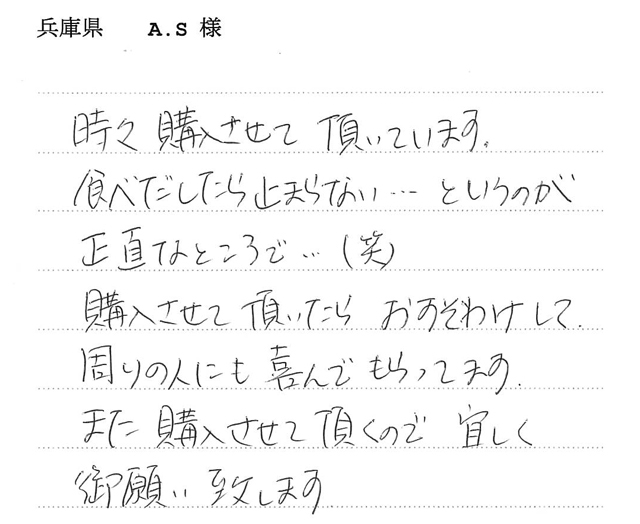 兵庫県 A.S 様
時々購入させて頂いています。
食べだしたら止まらない… というのが
正直なところで…(笑)
購入させて頂いたら おすそわけして、
周りの人にも喜んでもらってます。
また購入させて頂くので 宜しく
御願い致します